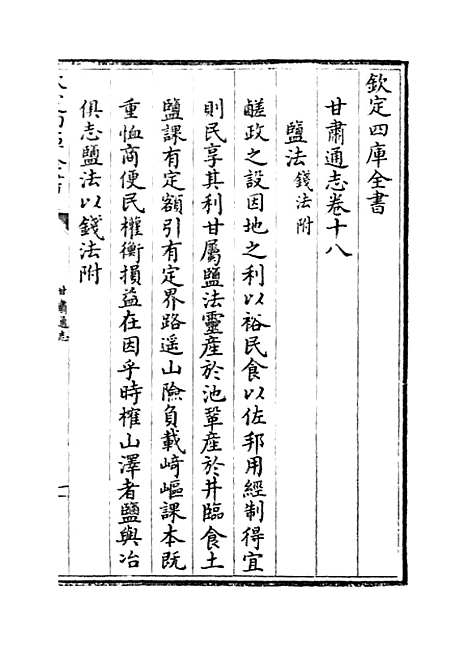 欽定四庫全書
甘肅通志卷十八
鹽法錢法附
鹺政之設因地之利以裕民食以佐邦用經制得宜
則民享其利甘屬鹽法靈産於池鞏産於井臨食土
鹽課有定額引有定界路遥山險負載﨑嶇課本既
重恤商便民權衡損益在因乎時榷山澤者鹽與冶
俱志鹽法以錢法附
甘肅通志
一